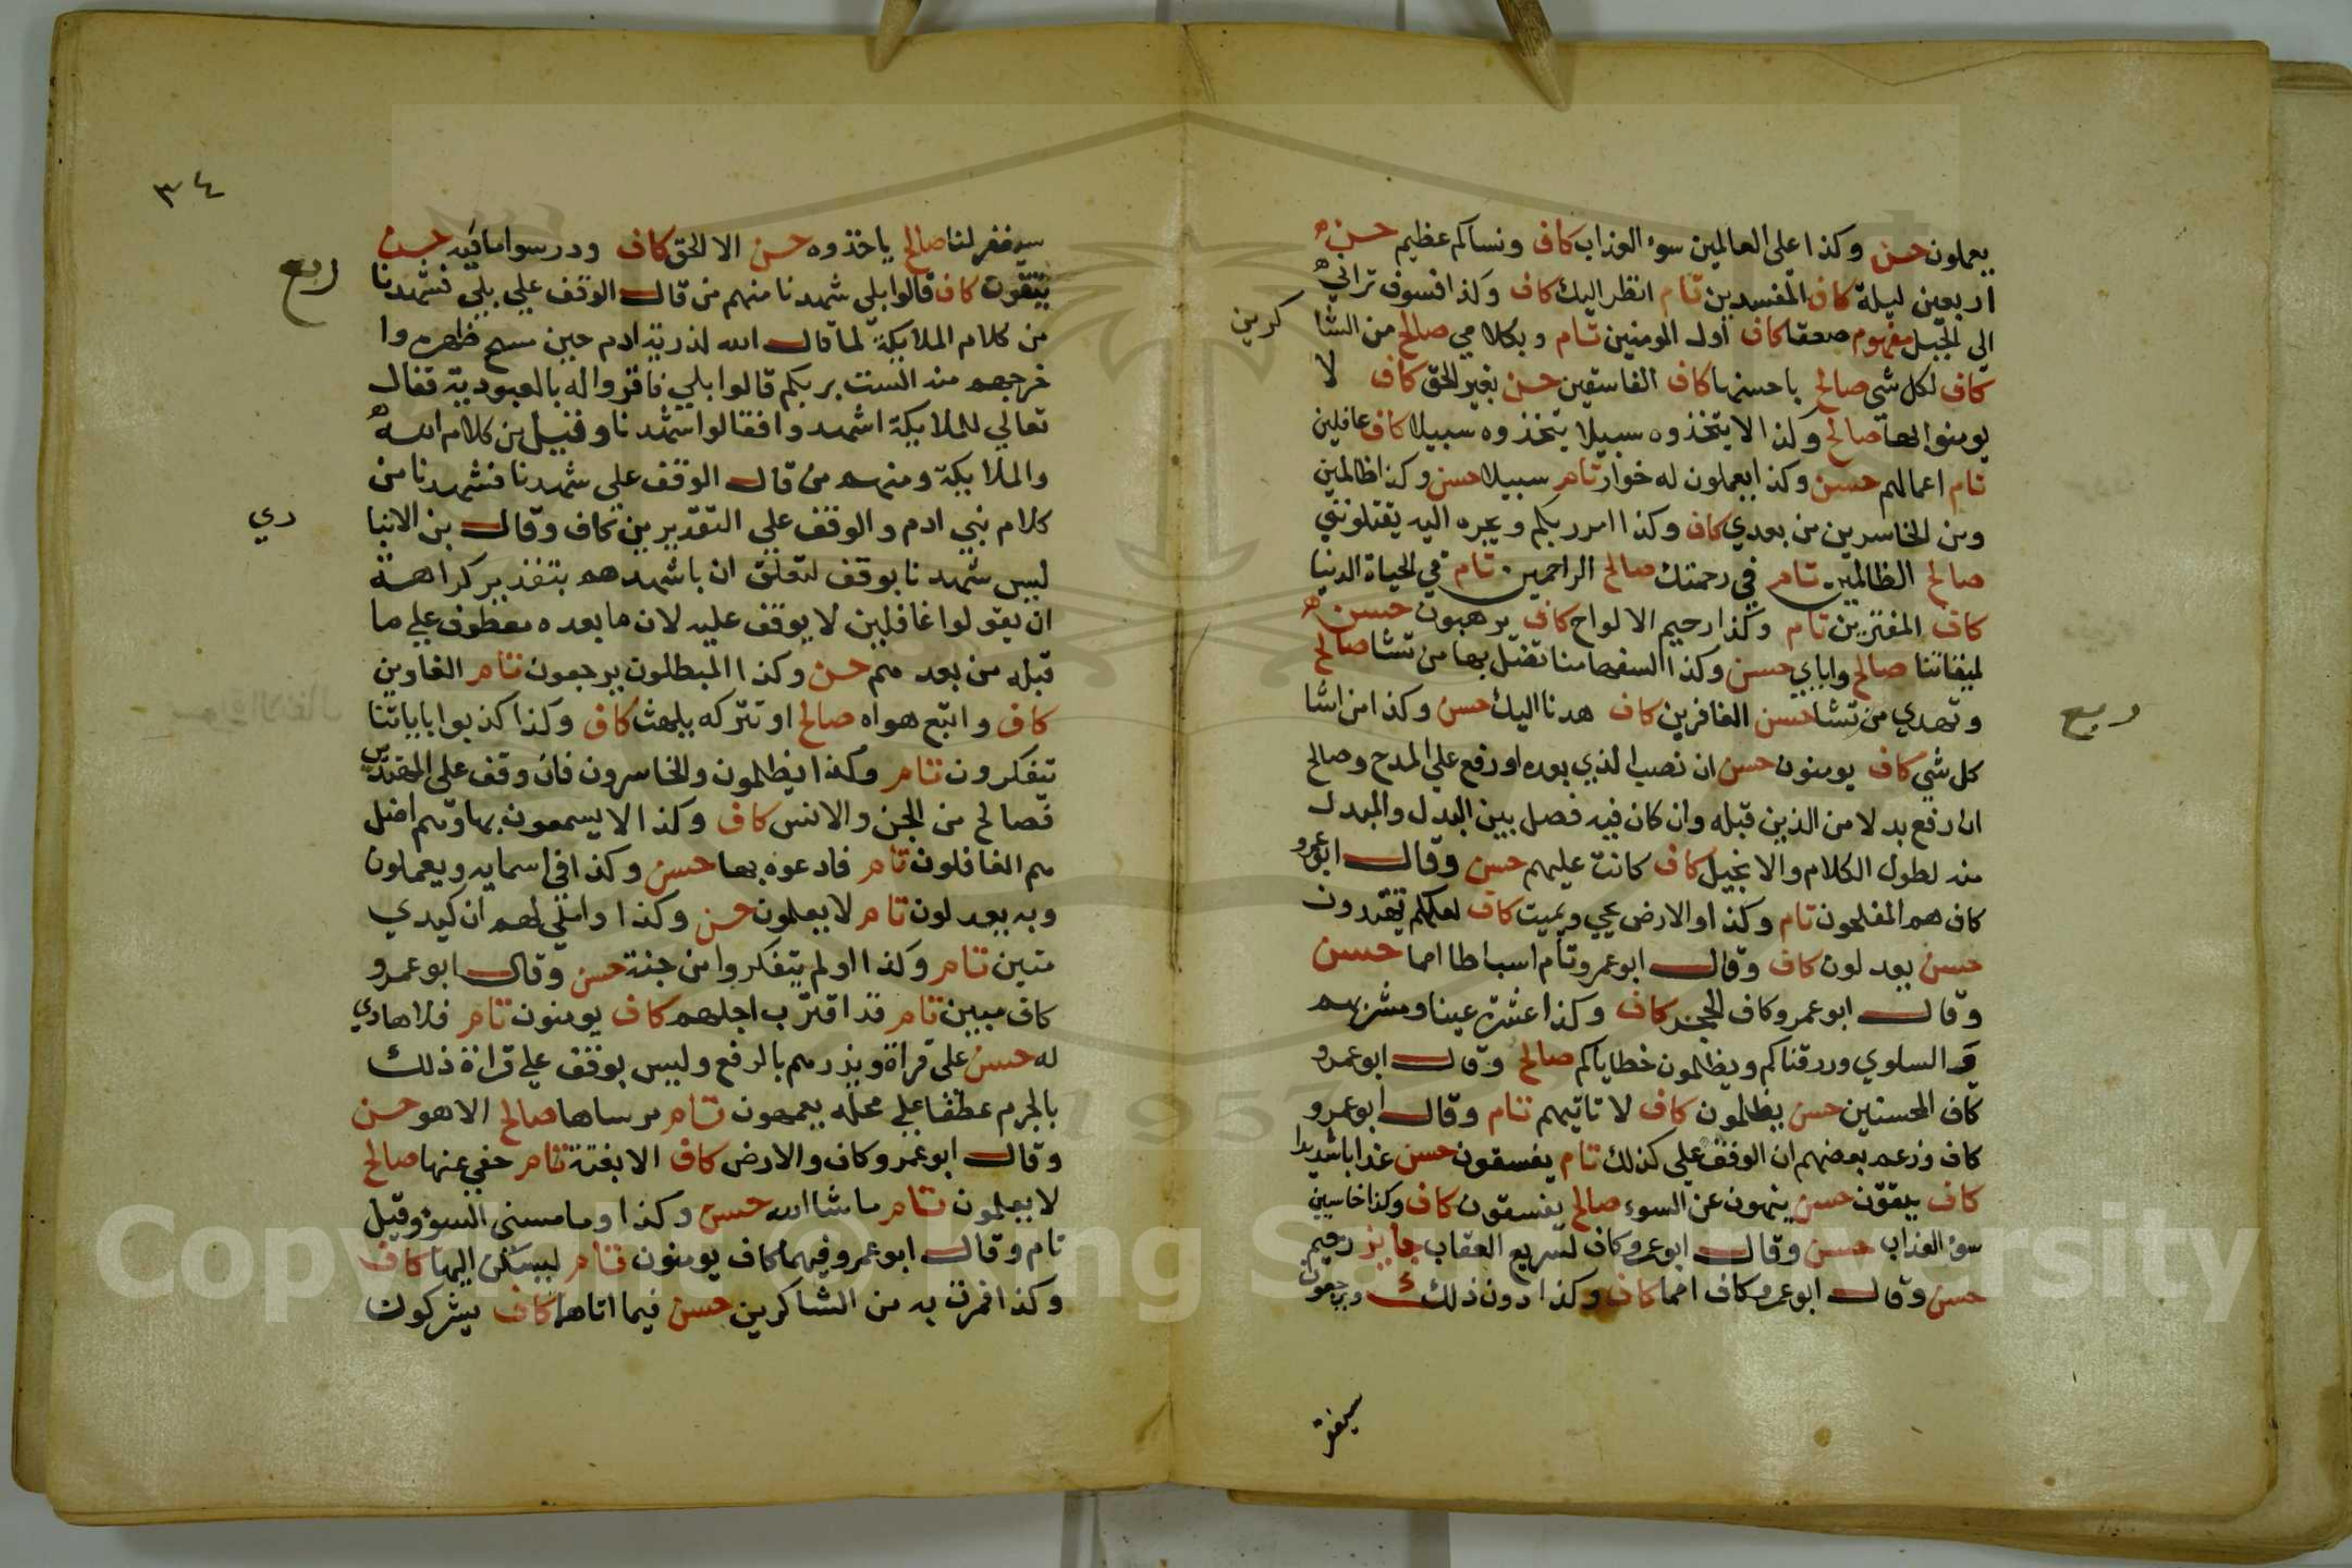 يعملون حسن وكذا على العالمين سوء العذاب كاف ونساكم عظيم حسن
اربعين ليلة كاف المفسدين تام انظر اليك كاف وكذا فسوف تراني
الى الجبل مفهوم صعقا كاف اول المومنين تام وبكلامي صالح من الشا
كرين
كاف لكل شي صالح باحسنها كاف الفاسقين حسن بغير الحق كاف لا
يومنوا بها صالح وكذا لا يتخذوه سبيلا يتخذوه سبيلا كاف غافلين
تام اعمالهم حسن وكذا يعملون له خوار تام سبيلا حسن وكذا ظالمين
ومن الخاسرين من بعدي كاف وكذا امر ربكم ويجره اليه يقتلونني
صالح الظالمين تام في رحمتك صالح الراحمين تام في الحياة الدنيا
كاف المفترين تام وكذا رحيم الالواح كاف يرهبون حسن
لميقاتنا صالح واياي حسن وكذا السفها منا تضل بها من تشا صالح
وتهدي من تشا حسن الغافرين كاف هدنا اليك حسن وكذا من اشا
ربع
كل شي كاف يومنون حسن ان نصب الذي بعده او رفع على المدح وصالح
ان رفع بدلا من الذين قبله وان كان فيه فصل بين البدل والمبدل
منه لطول الكلام والانجيل كاف كانت عليهم حسن وقال ابو عمرو
كاف هم المفلحون تام وكذا والارض يحي ويميت كاف لعلكم تهتدون
حسن يعدلون كاف وقال ابو عمرو تام اسباطا امما حسن
وقال ابو عمرو كاف الحجر كاف وكذا عشرة عينا ومشربهم
والسلوي ورزقناكم ويظلمون خطاياكم صالح وقال ابو عمرو
كاف المحسنين حسن يظلمون كاف لا تاتيهم تام وقال ابو عمرو
كاف وزعم بعضهم ان الوقف على كذلك تام يفسقون حسن عذابا شديدا
كاف يتقون حسن ينهون عن السوء صالح يفسقون كاف وكذا خاسيين
سوء العذاب حسن وقال ابو عمرو كاف لسريع العقاب جايز رحيم
حسن وقال ابو عمرو كاف امما كاف وكذا دون ذلك ويرجعون
سيغفر
٣٤
سيغفر لنا صالح ياخذوه حسن الا الحق كاف ودرسوا ما فيه حسن
ربع
يتقون كاف قالوا بلى شهدنا منهم من قال الوقف على بلى فشهدنا
من كلام الملايكة لما قال الله لذرية ادم حين مسح ظهره وا
خرجهم منه الست بربكم قالوا بلى فاقروا له بالعبودية فقال
تعالى للملايكة اشهدوا فقالوا شهدنا وقيل من كلام الله
والملايكة ومنهم من قال الوقف على شهدنا فشهدنا من
كلام بني ادم والوقف على التقديرين كاف وقال بن الانبا
ري
ليس شهدنا بوقف لتعلق ان باشهدهم بتقدير كراهة
ان يقولوا غافلين لا يوقف عليه لان ما بعده معطوف على ما
قبله من بعدهم حسن وكذا المبطلون يرجعون تام الغاوين
كاف واتبع هواه صالح او تتركه يلهث كاف وكذا كذبوا باياتنا
يتفكرون تام وكذا يظلمون والخاسرون فان وقف على المهتدي
فصالح من الجن والانس كاف وكذا لا يسمعون بها وهم اضل
هم الغافلون تام فادعوه بها حسن وكذا في اسمايه ويعملون
وبه يعدلون تام لا يعلمون حسن وكذا واملي لهم ان كيدي
متين تام وكذا اولم يتفكروا من جنة حسن وقال ابو عمرو
كاف مبين تام قد اقترب اجلهم كاف يومنون تام فلا هادي
له حسن على قراة ويذرهم بالرفع وليس بوقف على قراة ذلك
بالجزم عطفا على محله يعمهون تام مرساها صالح الا هو حسن
وقال ابو عمرو كاف والارض كاف الا بغتة تام حفي عنها صالح
لا يعلمون تام ما شا الله حسن وكذا وما مسني السوء وقيل
تام وقال ابو عمرو فيهما كاف يومنون تام ليسكن اليها كاف
وكذا فمرت به من الشاكرين حسن فيما اتاهما كاف يشركون
Copyright © King Saud University
1957